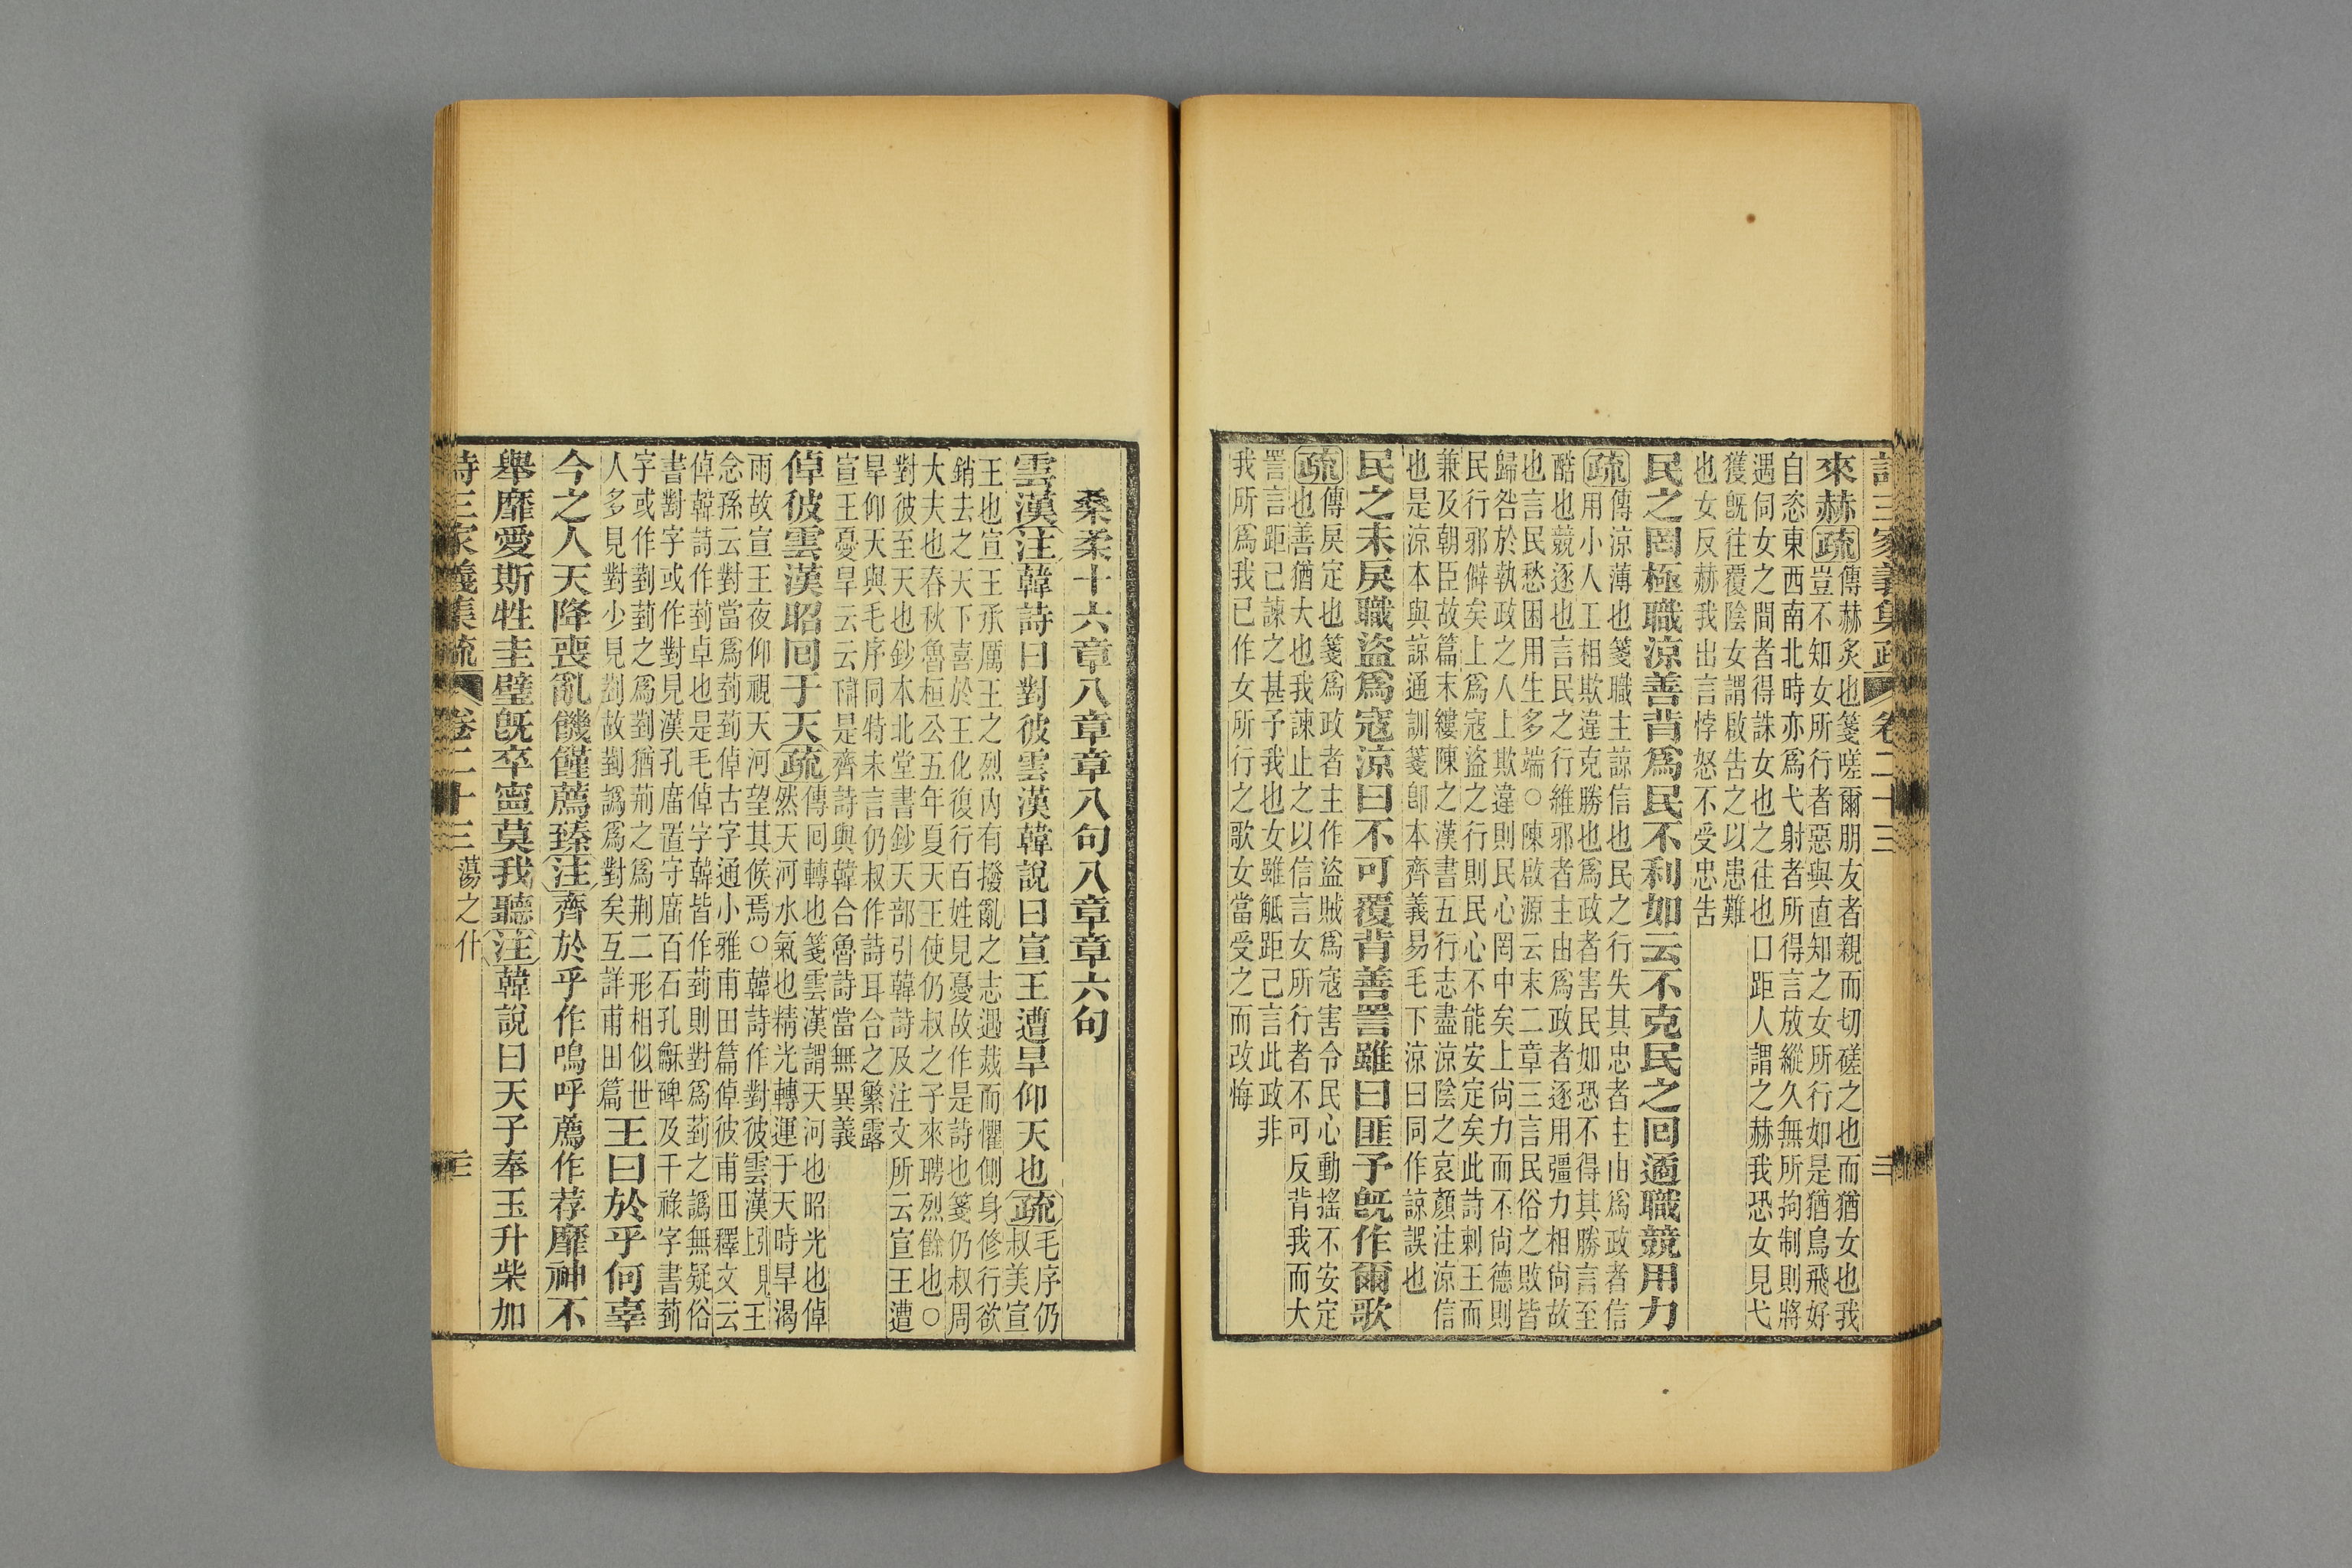 詩三家義集疏 卷二十三
來赫疏傳赫炙也箋嗟爾朋友者親而切磋之也而猶女也我
豈不知女所行者惡與直知之女所行如是猶鳥飛好
自恣東西南北時亦爲弋射者所得言放縱久無所拘制則將
遇伺女之間者得誅女也之往也口距人謂之赫我恐女見弋
獲旣往覆陰女謂啟告之以患難
也女反赫我出言悖怒不受忠告
民之罔極職涼善背爲民不利如云不克民之回遹職競用力
疏傳涼薄也箋職主諒信也民之行失其忠者主由爲政者信
用小人工相欺違克勝也爲政者害民如恐不得其勝言至
酷也競逐也言民之行維邪者主由爲政者逐用彊力相尙故
也言民愁困用生多端○陳啟源云末二章三言民俗之敗皆
歸咎於執政之人上欺違則民心罔中矣上尙力而不尙德則
民行邪僻矣上爲寇盜之行則民心不能安定矣此詩刺王而
兼及朝臣故篇末縷陳之漢書五行志盡涼陰之哀顏注涼信
也是涼本與諒通訓箋卽本齊義易毛下涼曰同作諒誤也
民之未戾職盜爲寇涼曰不可覆背善詈雖曰匪予旣作爾歌
疏傳戾定也箋爲政者主作盜賊爲寇害令民心動搖不安定
也善猶大也我諫止之以信言女所行者不可反背我而大
詈言距己諫之甚予我也女雖觝距己言此政非
我所爲我已作女所行之歌女當受之而改悔
桑柔十六章八章章八句八章章六句
雲漢注韓詩曰對彼雲漢韓說曰宣王遭旱仰天也疏毛序仍
叔美宣
王也宣王承厲王之烈內有撥亂之志遇烖而懼側身修行欲
銷去之天下喜於王化復行百姓見憂故作是詩也箋仍叔周
大夫也春秋魯桓公五年夏天王使仍叔之子來聘烈餘也○
對彼至天也鈔本北堂書鈔天部引韓詩及注文所云宣王遭
旱仰天與毛序同特未言仍叔作詩耳合之繁露
宣王憂旱云云瀟是齊詩與韓合魯詩當無異義
倬彼雲漢昭回于天疏傳回轉也箋雲漢謂天河也昭光也倬
然天河水氣也精光轉運于天時旱渴
雨故宣王夜仰視天河望其候焉○韓詩作對彼雲漢引見上王
念孫云對當爲菿菿倬古字通小雅甫田篇倬彼甫田釋文云
倬韓詩作菿卓也是毛倬字韓皆作菿則對爲菿之譌無疑俗
書對字或作對見漢孔廣置守廟百石孔龢碑及干祿字書菿
字或作菿菿之爲對猶荊之爲荆二形相似世
人多見對少見菿故菿譌爲對矣互詳甫田篇王曰於乎何辜
今之人天降喪亂饑饉薦臻注齊於乎作嗚呼薦作荐靡神不
舉靡愛斯牲圭璧旣卒寧莫我聽注韓說曰天子奉玉升柴加
詩三家義集疏 卷二十三 蕩之什